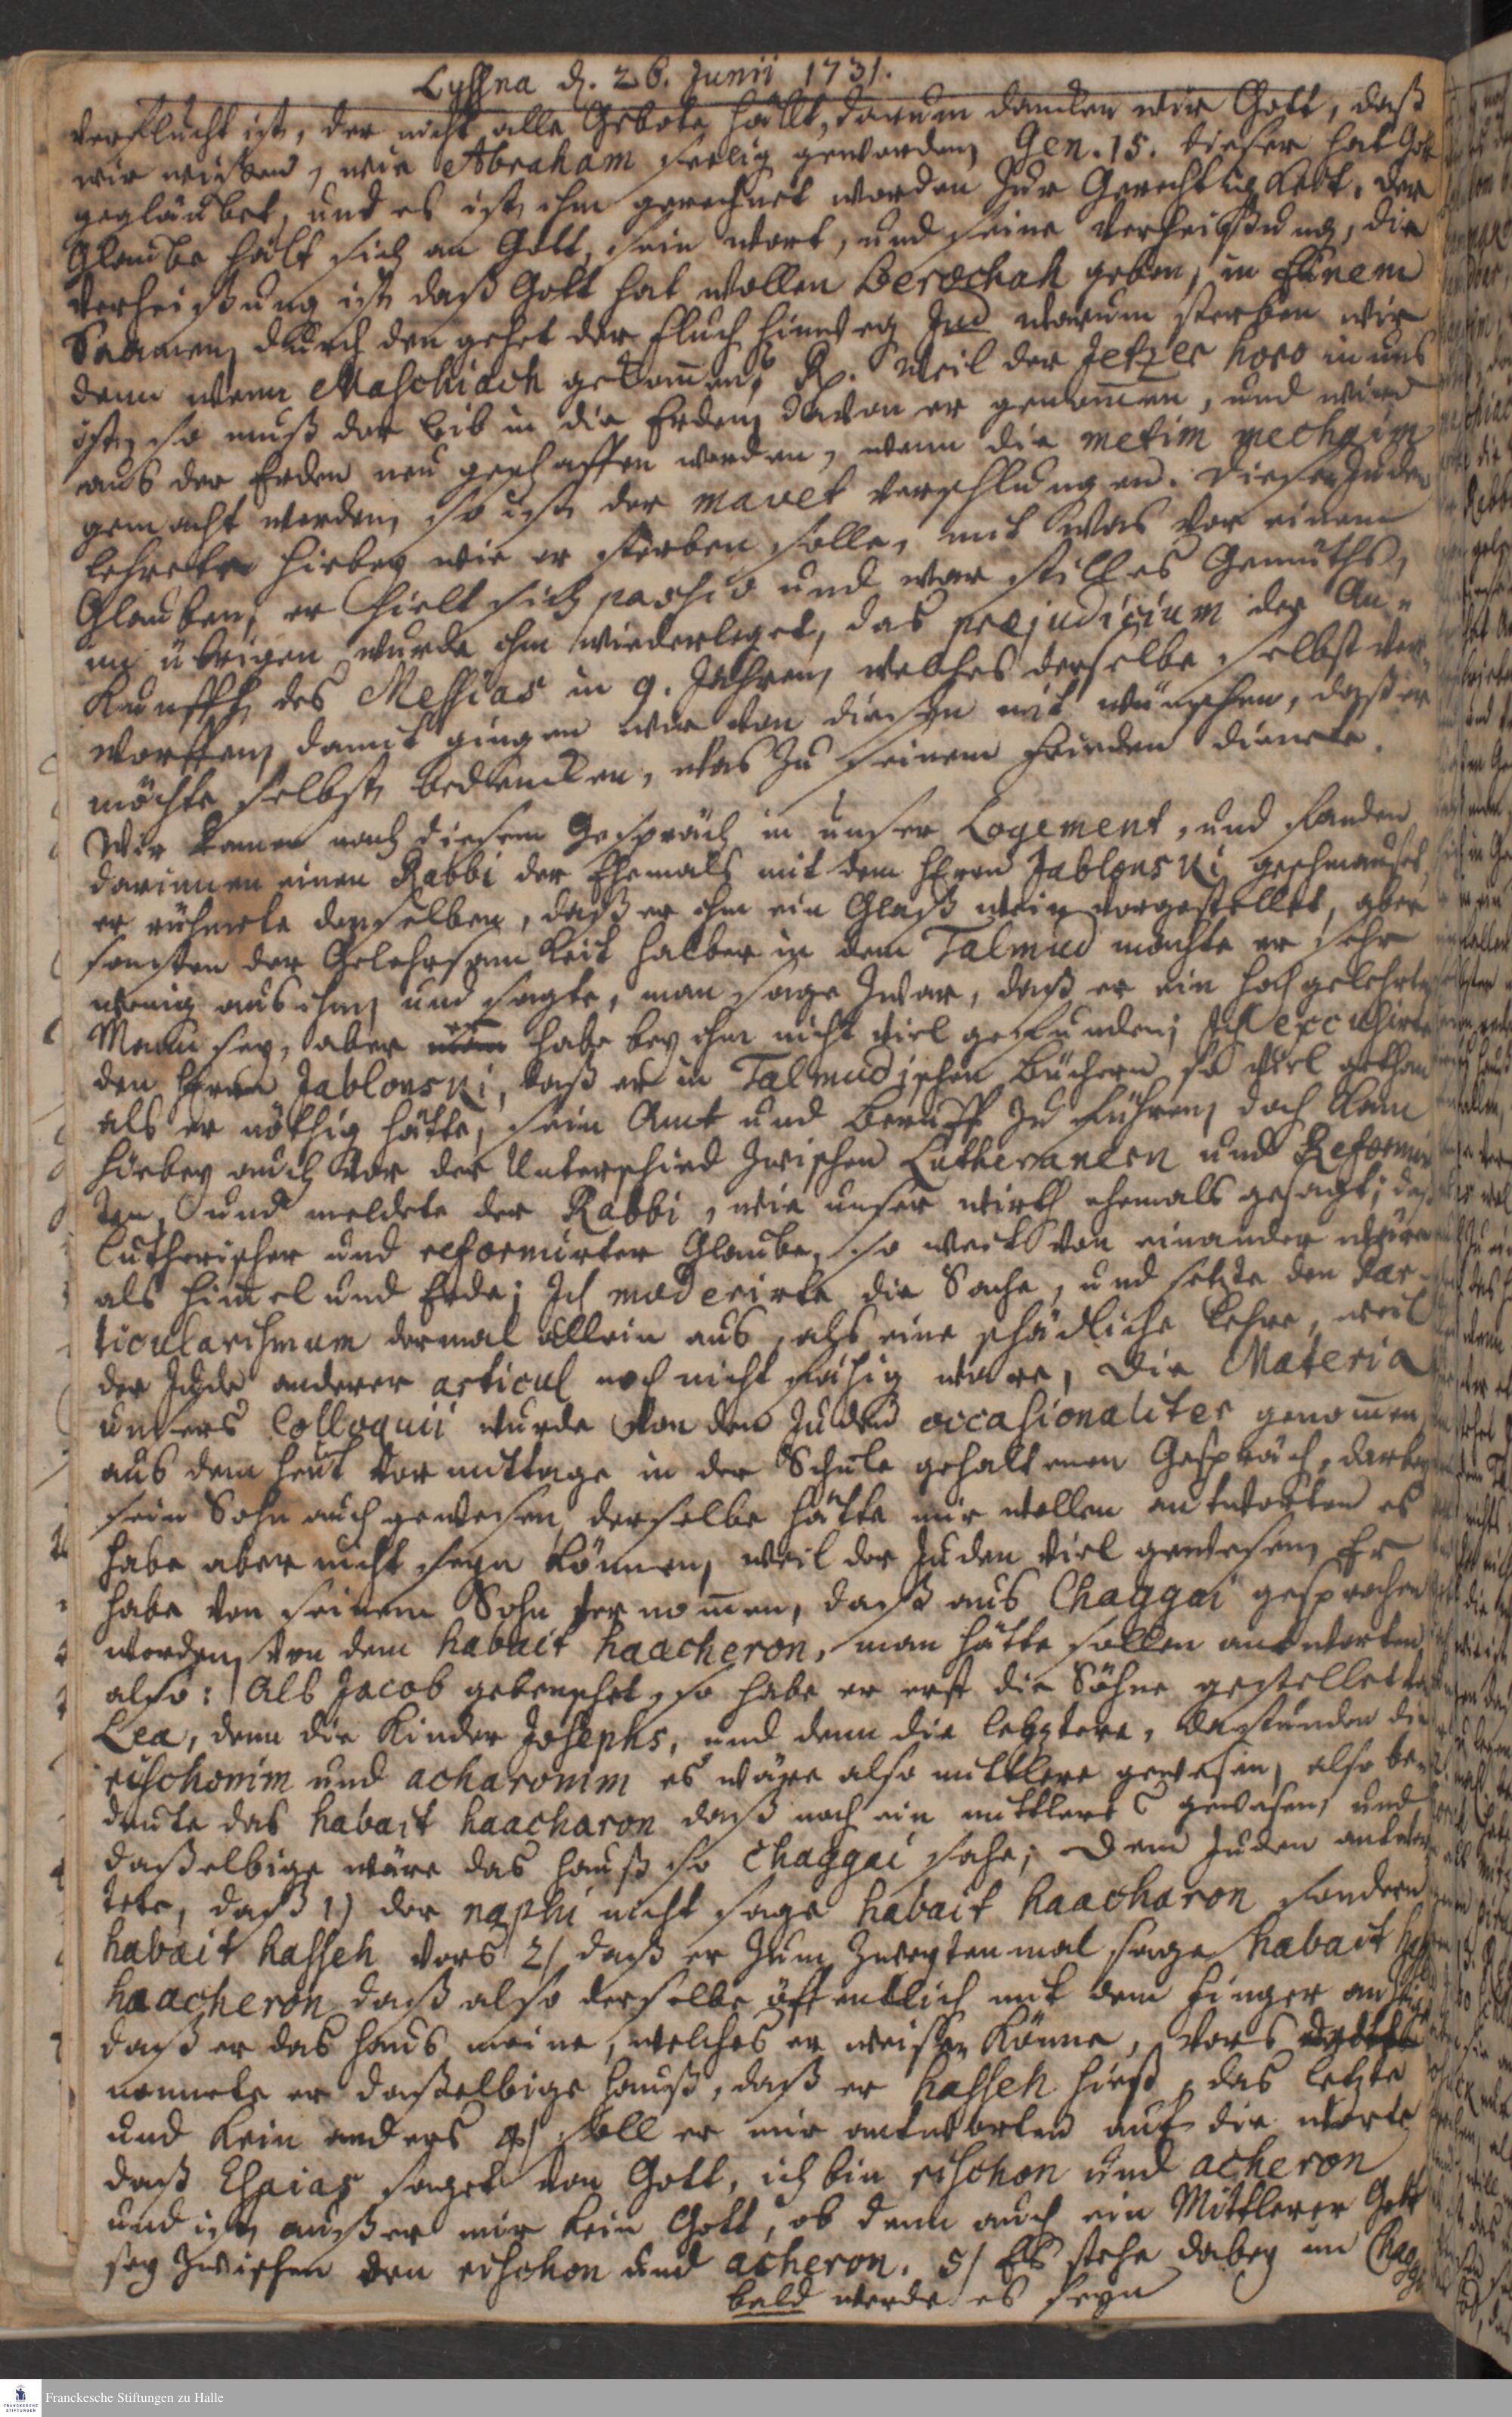 Lyssna d. 26. Junii 1731.
verflucht ist, der nicht alle Gebote hällt, darum dancken wir Gott, daß
wir wissen, wie Abraham seelig geworden Gen. 15. dieser hat Gott
gegläubet, und es ist ihm gerechnet worden zur Gerechtigkeit. der
Glaube hält sich an Gott, sein wort, und seine Verheißung, die
Verheißung ist daß Gott hat wollen Berochah geben, in Einem
Saamen, durch den gehet der Fluch hinweg Jud warum sterben wir
denn wenn Maschiach gekom̄en? Rp. Weil der Jetzer horo in uns
ist, so muß der Leib in die Erden, davon er genom̄en, und wird
aus der Erden neu geschaffen werden, wenn die metim mechajim
gemacht werden, so ist der mavet verschlungen. Diesen Juden
lehrete hiebey wie er sterben solle, mit was vor einem
Glauben, er hielt sich und war stilles Gemüths,
im übrigen wurde ihm wiederleget, das præjudicium der An-
kunfft des Messias in 9. Jahren, welches derselbe selbst ver-
worffen, damit gingen wir von diesen mit wünschen, daß er
möchte selbst bedencken, was zu seinem Frieden dienete.
Wir kamen nach diesem Gespräch in unser Logement, und fanden
darinnen einen Rabbi der Ehemals mit dem Herrn Jablonski geschmauset,
er rühmete denselben, daß er ihm ein Glaß wein vorgestellet, aber
sonsten der Gelehrsamkeit halber in dem Talmud machte er sehr
wenig aus ihm, und sagte, man sage zwar, daß er ein hochgelehrter
Mann sey, aber er habe bey ihm nicht viel gefunden; Ich excusirte
den Herrn Jablonski, daß er in Talmudischen Büchern so viel gethan
als er nöthig hätte, sein Amt und Beruff zu führen, doch kam
hiebey auch vor der Unterschied zwischen Lutheranern und Reformir-
ten, und meldete der Rabbi, wie unser wirth ehemals gesagt; daß
Lutherischer und reformirter Glaube, so weit von einander wäre
als Him̄el und Erde; Ich moderirte die Sache, und setzte den Par-
ticularismum dermal allein aus, als eine schädliche Lehre, weil
der Jude anderer articul noch nicht fähig ware, Die Materia
unsers Colloquii wurde von den Juden occasionaliter genom̄en
aus dem heut vormittage in der Schule gehaltenen Gespräch, darbey
sein Sohn auch gewesen, derselbe hätte mir wollen antworten es
habe aber nicht seyn können, weil der Juden viel gewesen, Er
habe von seinem Sohn vernom̄en, daß aus Chaggai gesprochen
worden, von dem habait haacheron, man hätte sollen antworten
also: Als Jacob gebenschet, so habe er erst die Söhne gestellet der
Lea, denn die Kinder Josephs, und denn die letztere, da stunden die
rischonim und acharonim es wäre also mittlere gewesen, also be-
deute das habait haacharon daß noch ein mittlers gewesen, und
daßelbige wäre das Hauß so Chaggai sahe; Dem Juden antwor-
tete, daß 1) der naphi nicht sage habait haacharon sondern
habait hasseh vors 2) daß er zum zweytenmal sage habait
haacheron daß also derselbe öffentlich mit dem Finger anzeige
daß er das Haus meine, welches er weisen könne, vors
nennete er daßelbige Hauß, daß er hasseh hieß, das letzte
und kein anders 4) soll er mir antworten auf die worte
daß Esaias saget von Gott, ich bin rischon und acheron
und ist außer mir kein Gott, ob denn auch ein Mittlerer Gott
sey zwischen den rischon und acheron. 5) Es stehe dabey im Chaggai
bald werde es seyn
Franckesche Stiftungen zu Halle